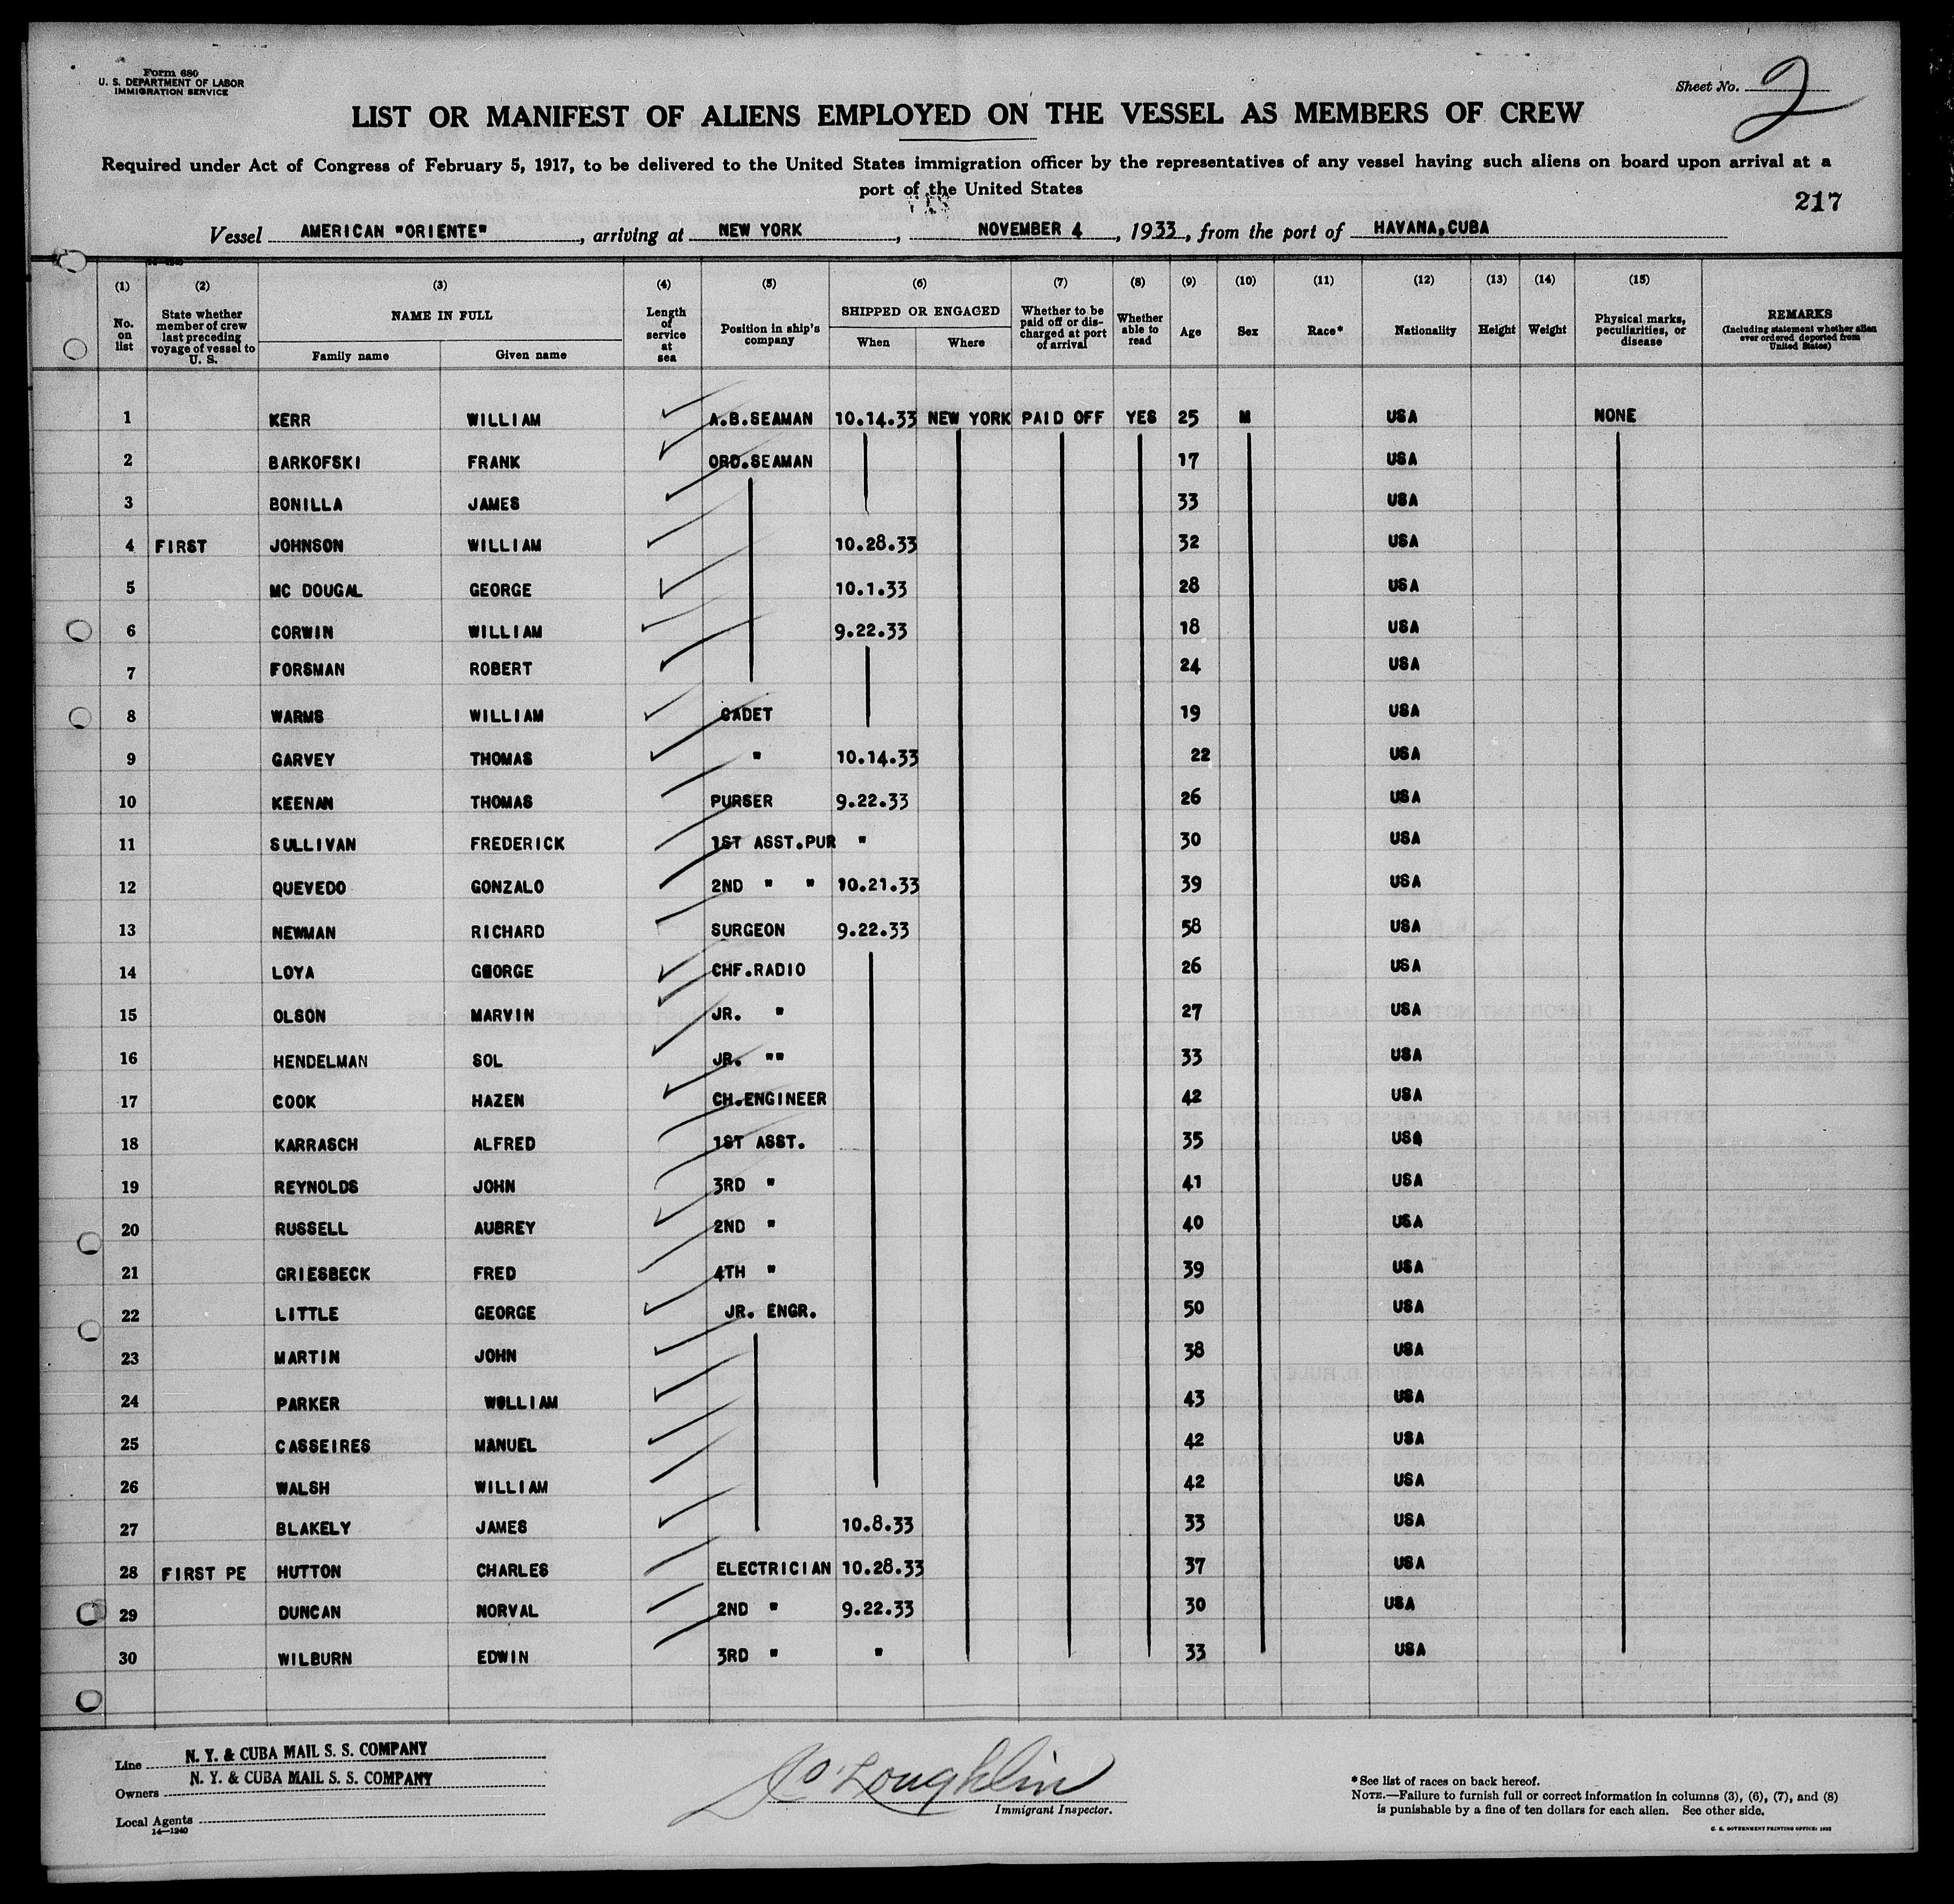 Form 680
U. S. DEPARTMENT OF LABOR
IMMIGRATION SERVICE
Sheet No. 2
LIST OR MANIFEST OF ALIENS EMPLOYED ON THE VESSEL AS MEMBERS OF CREW
Required under Act of Congress of February 5, 1917, to be delivered to the United States immigration officer by the representatives of any vessel having such aliens on board upon arrival at a
port of the United States
217
Vessel AMERICAN "ORIENTE", arriving at NEW YORK, NOVEMBER 4, 1933, from the port of HAVANA, CUBA
(1) (2) (3) (4) (5) (6) (7) (8) (9) (10) (11) (12) (13) (14) (15)
No. on list State whether member of crew last preceding voyage of vessel to U. S. NAME IN FULL Family name Given name Length of service at sea Position in ship's company SHIPPED OR ENGAGED When Where Whether to be paid off or discharged at port of arrival Whether able to read Age Sex Race* Nationality Height Weight Physical marks, peculiarities, or disease REMARKS (Including statement whether alien ever ordered deported from United States)
1 KERR WILLIAM A.B.SEAMAN 10.14.33 NEW YORK PAID OFF YES 25 M USA NONE
2 BARKOFSKI FRANK ORD.SEAMAN 17 USA
3 BONILLA JAMES 33 USA
4 FIRST JOHNSON WILLIAM 10.28.33 32 USA
5 MC DOUGAL GEORGE 10.1.33 28 USA
6 CORWIN WILLIAM 9.22.33 18 USA
7 FORSMAN ROBERT 24 USA
8 WARMS WILLIAM CADET 19 USA
9 GARVEY THOMAS " 10.14.33 22 USA
10 KEENAN THOMAS PURSER 9.22.33 26 USA
11 SULLIVAN FREDERICK 1ST ASST.PUR " 30 USA
12 QUEVEDO GONZALO 2ND " " 10.21.33 39 USA
13 NEWMAN RICHARD SURGEON 9.22.33 58 USA
14 LOYA GEORGE CHF.RADIO 26 USA
15 OLSON MARVIN JR. " 27 USA
16 HENDELMAN SOL JR. "" 33 USA
17 COOK HAZEN CH.ENGINEER 42 USA
18 KARRASCH ALFRED 1ST ASST. 35 USA
19 REYNOLDS JOHN 3RD " 41 USA
20 RUSSELL AUBREY 2ND " 40 USA
21 GRIESBECK FRED 4TH " 39 USA
22 LITTLE GEORGE JR. ENGR. 50 USA
23 MARTIN JOHN 38 USA
24 PARKER WILLIAM 43 USA
25 CASSEIRES MANUEL 42 USA
26 WALSH WILLIAM 42 USA
27 BLAKELY JAMES 10.8.33 33 USA
28 FIRST PE HUTTON CHARLES ELECTRICIAN 10.28.33 37 USA
29 DUNCAN NORVAL 2ND " 9.22.33 30 USA
30 WILBURN EDWIN 3RD " " 33 USA
Line N. Y. & CUBA MAIL S. S. COMPANY
Owners N. Y. & CUBA MAIL S. S. COMPANY
Local Agents
14—1240
Immigrant Inspector.
*See list of races on back hereof.
NOTE.—Failure to furnish full or correct information in columns (3), (6), (7), and (8)
is punishable by a fine of ten dollars for each alien. See other side.
U. S. GOVERNMENT PRINTING OFFICE: 1932